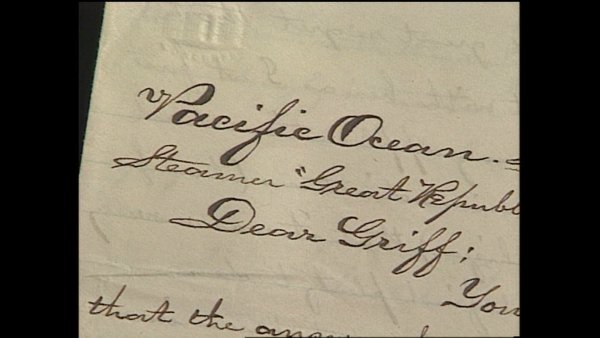 Pacific Ocean.
Steamer "Great Republ
Dear Griff;
You
that the